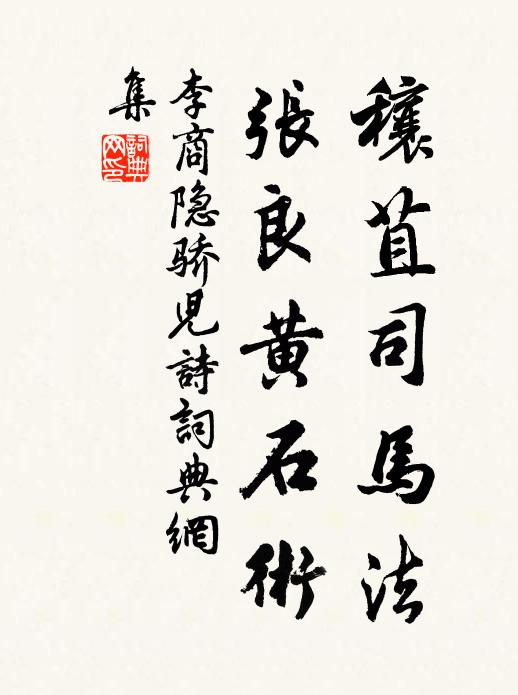 穰苴司馬法
張良黄石術
李商隐骄児詩詞典網
集
詞典
网印